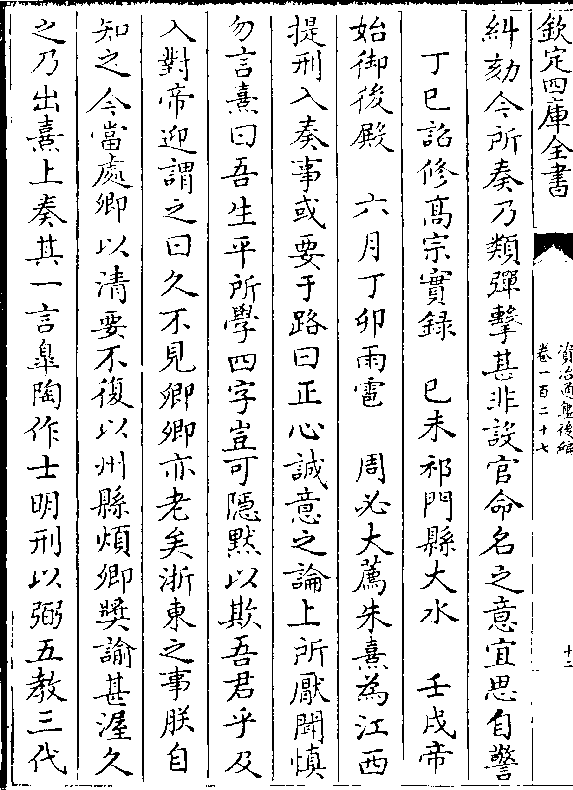 欽定四庫全書
資治通鑑後編
卷一百二十七
十二
糾劾今所奏乃類彈擊甚非設官命名之意宜思自警
丁巳詔修髙宗實録　己未祁門縣大水　壬戌帝
始御後殿　六月丁卯雨雹　周必大薦朱熹為江西
提刑入奏事或要于路曰正心誠意之論上所厭聞慎
勿言熹曰吾生平所學四字豈可隱黙以欺吾君乎及
入對帝迎謂之曰久不見卿卿亦老矣浙東之事朕自
知之今當處卿以清要不復以州縣煩卿奬諭甚渥久
之乃出熹上奏其一言臯陶作士明刑以弼五教三代